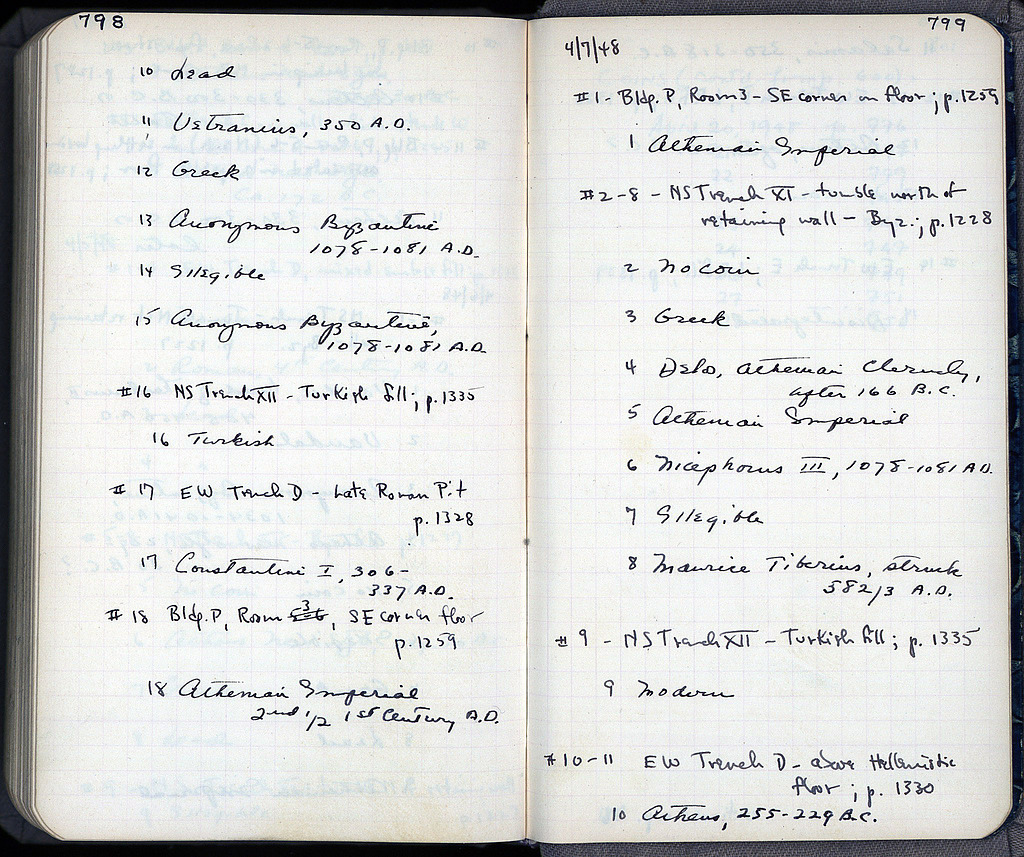 798
10 Lead
11 Vetranius, 350 A.D.
12 Greek
13 Anonymous Byzantine
1078-1081 A.D.
14 Illegible
15 Anonymous Byzantine,
1078-1081 A.D.
#16 NS Trench XII - Turkish fill; p. 1335
16 Turkish
#17 EW Trench D - Late Roman Pit
p. 1328
17 Constantine I, 306-
337 A.D.
#18 Bldg. P, Room 3, SE corner floor
p. 1259
18 Athenian Imperial
2nd 1/2 1st Century A.D.
799
4/7/48
#1 - Bldg. P, Room 3 - SE corner on floor; p. 1259
1 Athenian Imperial
#2-8 - NS Trench XI - tumble north of
retaining wall - Byz.; p. 1228
2 No coin
3 Greek
4 Delos, Athenian Cleruchy,
after 166 B.C.
5 Athenian Imperial
6 Nicephorus III, 1078-1081 A.D.
7 Illegible
8 Maurice Tiberius, struck
582/3 A.D.
#9 - NS Trench XII - Turkish fill; p. 1335
9 Modern
#10-11 EW Trench D - above Hellenistic
floor; p. 1330
10 Athens, 255-229 B.C.